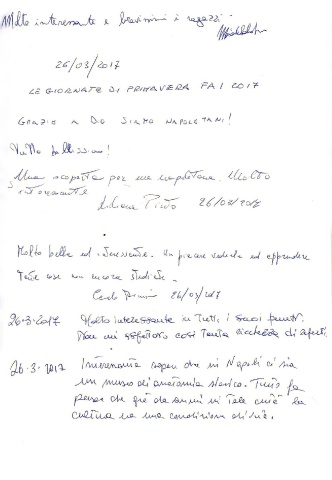 Molto interessante e bravissimi i ragazzi
26/03/2017
LE GIORNATE DI PRIMAVERA FAI 2017
GRAZIE A DIO SIAMO NAPOLETANI!
Tutto bellissimo!
Una scoperta per una napoletana. Molto
interessante
26/03/2017
Molto bello ed interessante. Un piacere vederlo ed apprendere
tante cose
26/03/2017
26-3-2017 Molto interessante in tutti i suoi punti.
Non mi aspettavo così tanta ricchezza di
26-3-2017 Interessante sapere che in Napoli ci sia
un museo di anatomia storico. Tutto fa
pensare che già da anni in Italia c'è la
cultura